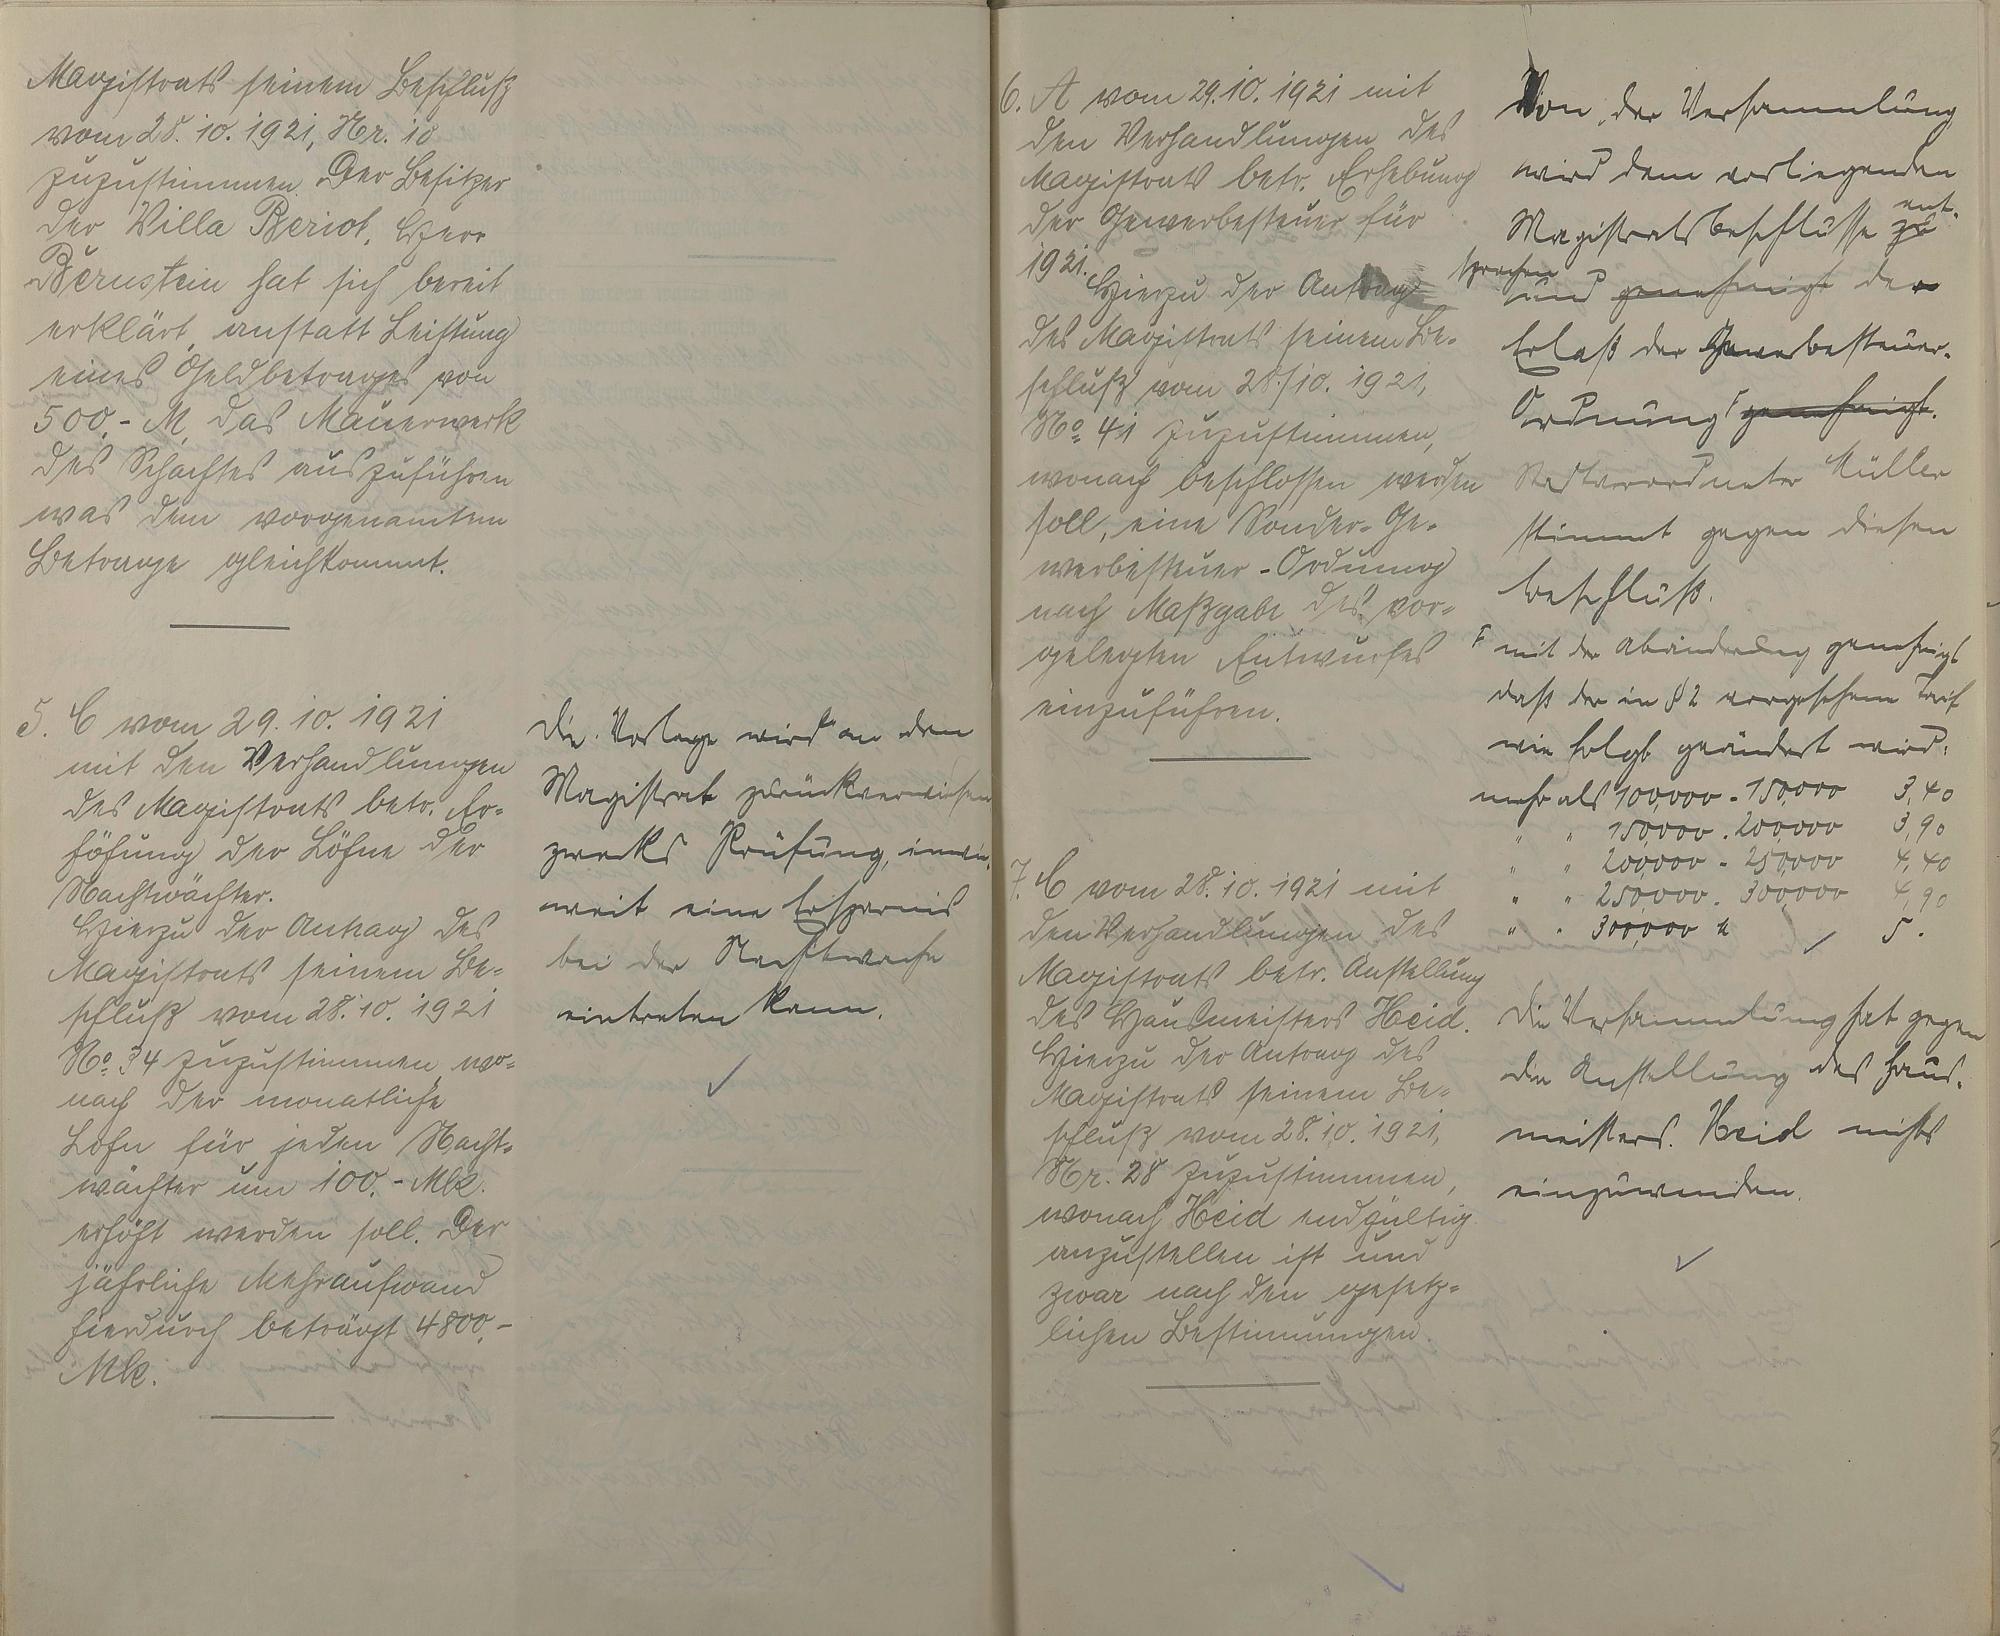 Magistrats seinem Beschluß
vom 28.10.1921, Nr. 10
zuzustimmen. Der Besitzer
der Villa Beriot, Herr
Bernstein hat sich bereit
erklärt, anstatt Leistung
eines Geldbetrages von
500,- M. das Mauerwerk
des Schachtes auszuführen
was dem vorgenamten
Betrage gleichkommt.
5. C vom 29.10.1921
mit den Verhandlungen
des Magistrats betr. Er-
höhung der Löhne der
Nachtwächter.
Hierzu der Antrag des
Magistrats seinem Be-
schluß vom 28.10.1921
No. 34 zuzustimmen, wo-
nach der monatliche
Lohn für jeden Nacht-
wächter um 100.- Mk.
erhöht werden soll. Der
jährliche Mehraufwand
hierdurch beträgt 4800,-
Mk.
Die Vorlage wird an den
Magistrat zurückverwiesen
zwecks Prüfung, inwie-
weit eine Ersparnis
bei der Nachtwache
eintreten kann.
6. A vom 29.10.1921 mit
den Verhandlungen des
Magistrats betr. Erhebung
der Gewerbesteuer für
1921.
Hierzu der Antrag
des Magistrats seinem Be-
schluß vom 28./10. 1921,
No. 41 zuzustimmen,
wonach beschlossen werden
soll, eine Sonder-Ge-
werbesteuer-Ordnung
nach Maßgabe des vor-
gelegten Entwurfes
einzuführen.
Von der Versammlung
wird dem vorliegenden
Magistratsbeschlusse zu ent-
sprochen
und genehmigt der
Erlaß der Gewerbesteuer-
Ordnung F genehmigt.
Stadtverordneter Müller
stimmt gegen diesen
Beschluß.
F mit der Abänderung genehmigt
daß der in § 2 vorgesehene Tarif
wie folgt geändert wird:
mehr als 100,000 - 150,000 3,40
" " 150,000 - 200,000 3,90
" " 200,000 - 250,000 4,40
" " 250,000 - 300,000 4,90
" " 300,000 M 5.
7. C vom 28.10.1921 mit
den Verhandlungen des
Magistrats betr. Anstellung
des Hausmeisters Heid.
Hierzu der Antrag des
Magistrats seinem Be-
schluß vom 28.10.1921,
Nr. 28 zuzustimmen,
wonach Heid endgültig
anzustellen ist und
zwar nach den gesetz-
lichen Bestimmungen.
Die Versammlung hat gegen
die Anstellung des Haus-
meisters Heid nichts
einzuwenden.